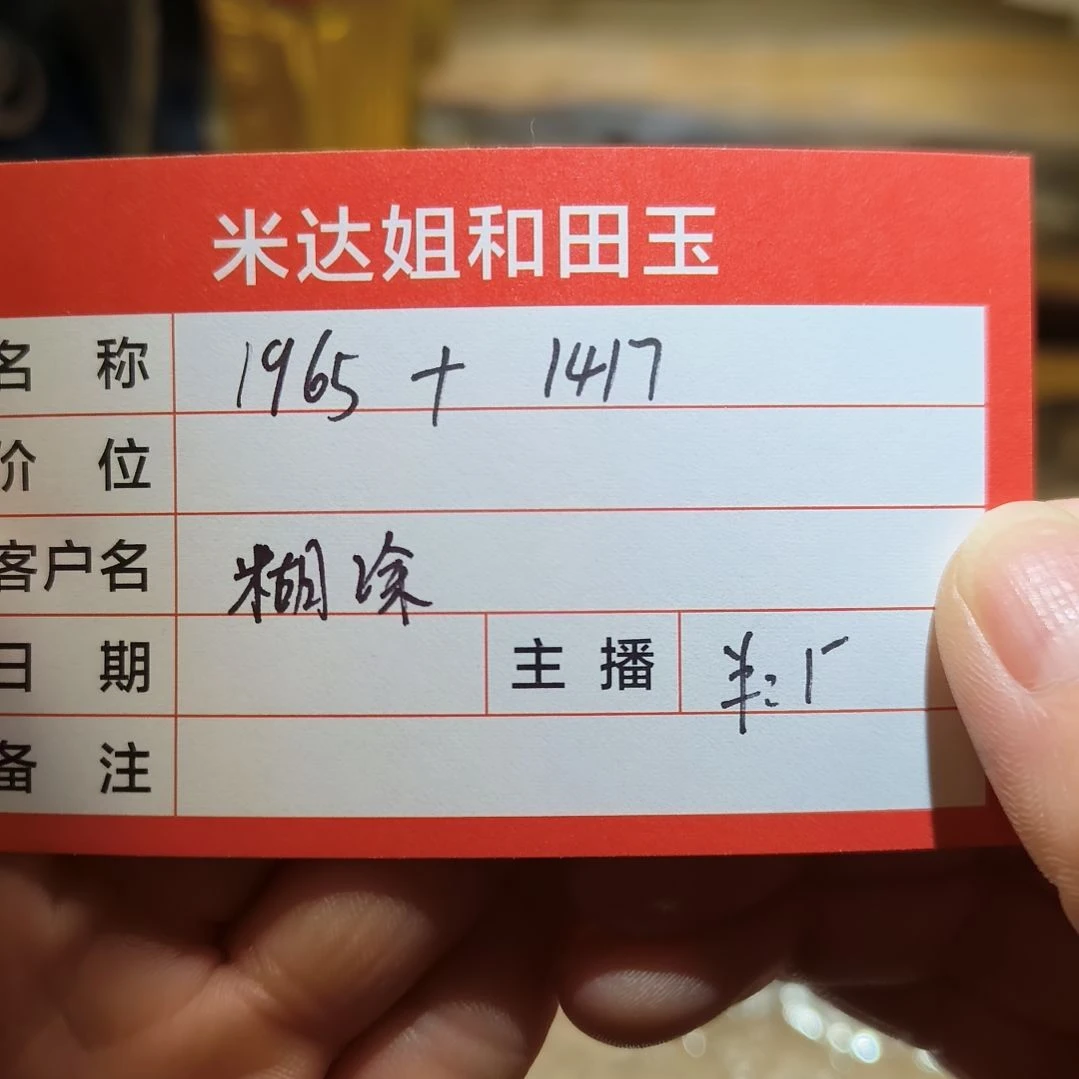 米达姐和田玉
名称 1965 + 1417
价位
客户名 糊涂
日期 主播
备注